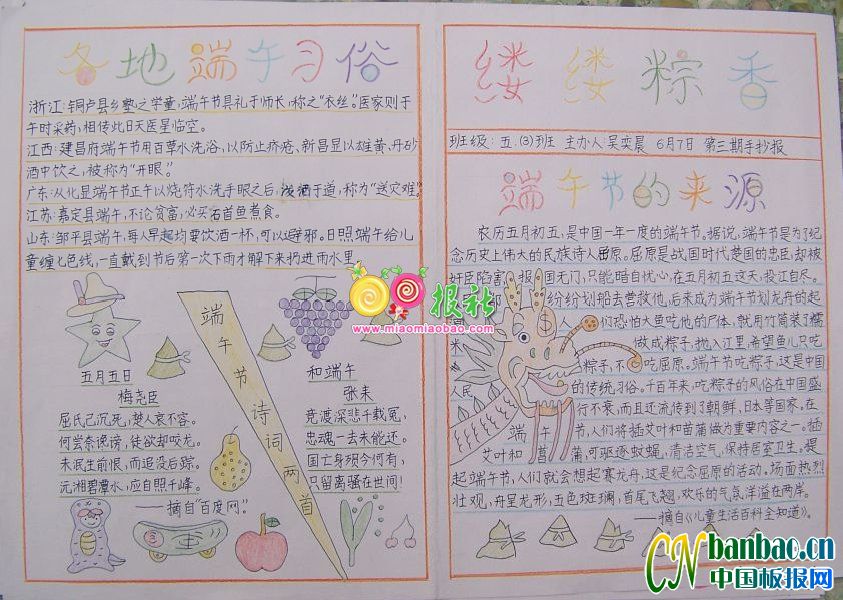 各地端午习俗
浙江:铜卢县乡塾之学童,端午节具礼于师长,称之"衣丝。"医家则于
午时采药,相传此日天医星临空。
江西:建昌府端午节用百草水洗浴,以防止疥疮、新昌县以雄黄、丹砂
酒中饮之,被称为"开眼。"
广东:从化县端午节正午以烧符水洗手眼之后,泼洒于道,称为"送灾难。"
江苏:嘉定县端午,不论贫富,必买石首鱼煮食。
山东:邹平县端午,每人早起均要饮酒一杯,可以避邪。日照端午给儿
童缠七色线,一直戴到节后第一次下雨才解下来扔进雨水里
端午节诗词两首
五月五日
梅尧臣
屈氏已沉死,楚人哀不容。
何尝奈谗谤,徒欲却蛟龙。
未泯生前恨,而追没后踪。
沅湘碧潭水,应自照千峰。
——摘自"百度网。"
和端午
张耒
竞渡深悲千载冤,
忠魂一去未能还。
国亡身殒今何有,
只留离骚在世间!
缕缕粽香
班级:五.(3)班 主办人:吴奕晨 6月7日 第三期手抄报
端午节的来源
农历五月初五,是中国一年一度的端午节。据说,端午节是为了纪
念历史上伟大的民族诗人屈原。屈原是战国时代楚国的忠臣,却被
奸臣陷害,报国无门,只能暗自忧心,在五月初五这天,投江自尽。
纷纷划船去营救他,后来成为端午节划龙舟的起
人们恐怕大鱼吃他的尸体,就用竹筒装了糯
米做成粽子,抛入江里,希望鱼儿只吃
粽子,不吃屈原。端午节吃粽子,这是中国
人民的传统习俗。千百年来,吃粽子的风俗在中国盛
行不衰,而且还流传到了朝鲜,日本等国家,在
端午节,人们将插艾叶和菖蒲做为重要内容之一。插
艾叶和菖蒲,可驱逐蚊蝇,清洁空气,保持居室卫生。提
起端午节,人们就会想起赛龙舟,这是纪念屈原的活动。场面热烈
壮观,舟呈龙形,五色斑斓,首尾飞翘,欢乐的气氛洋溢在两岸。
——摘自《儿童生活百科全知道》。
报社
www.miaomiaobao.com
CN banbao.cn
中国板报网